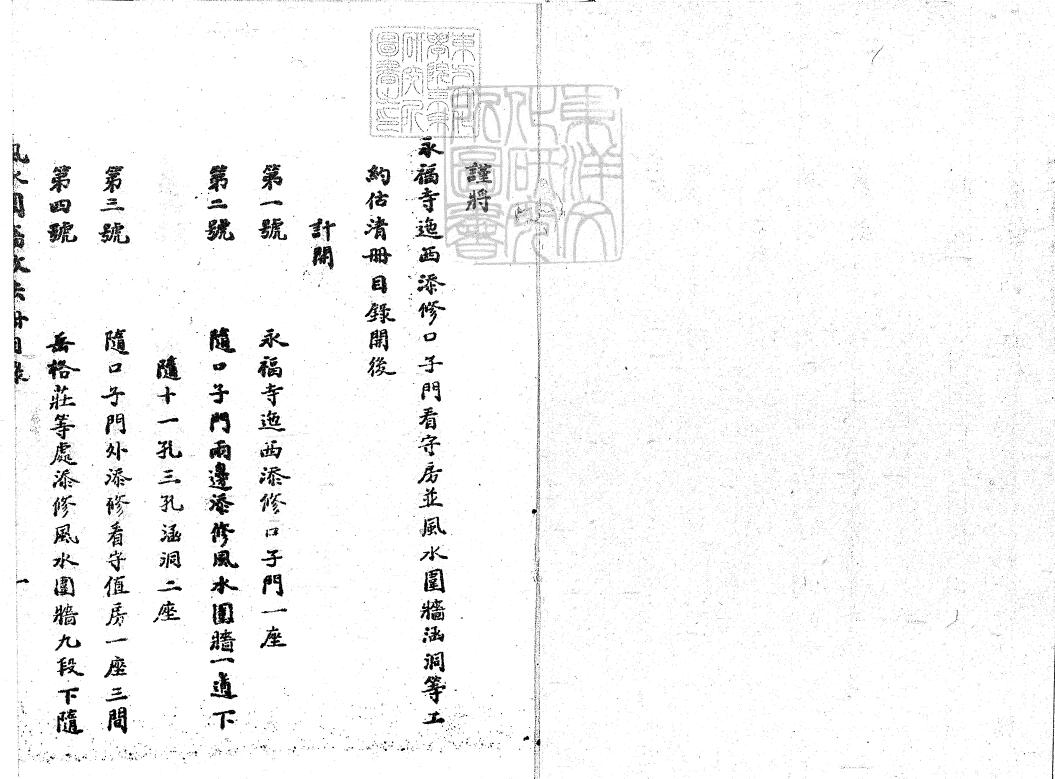 謹將
永福寺迤西添修口子門看守房並風水圍牆涵洞等工
約估清冊目錄開後
計開
第一號 永福寺迤西添修口子門一座
第二號 隨口子門兩邊添修風水圍牆一道下
隨十一孔三孔涵洞二座
第三號 隨口子門外添修看守值房一座三間
第四號 岳格莊等處添修風水圍牆九段下隨
風水圍牆
冊目錄
一